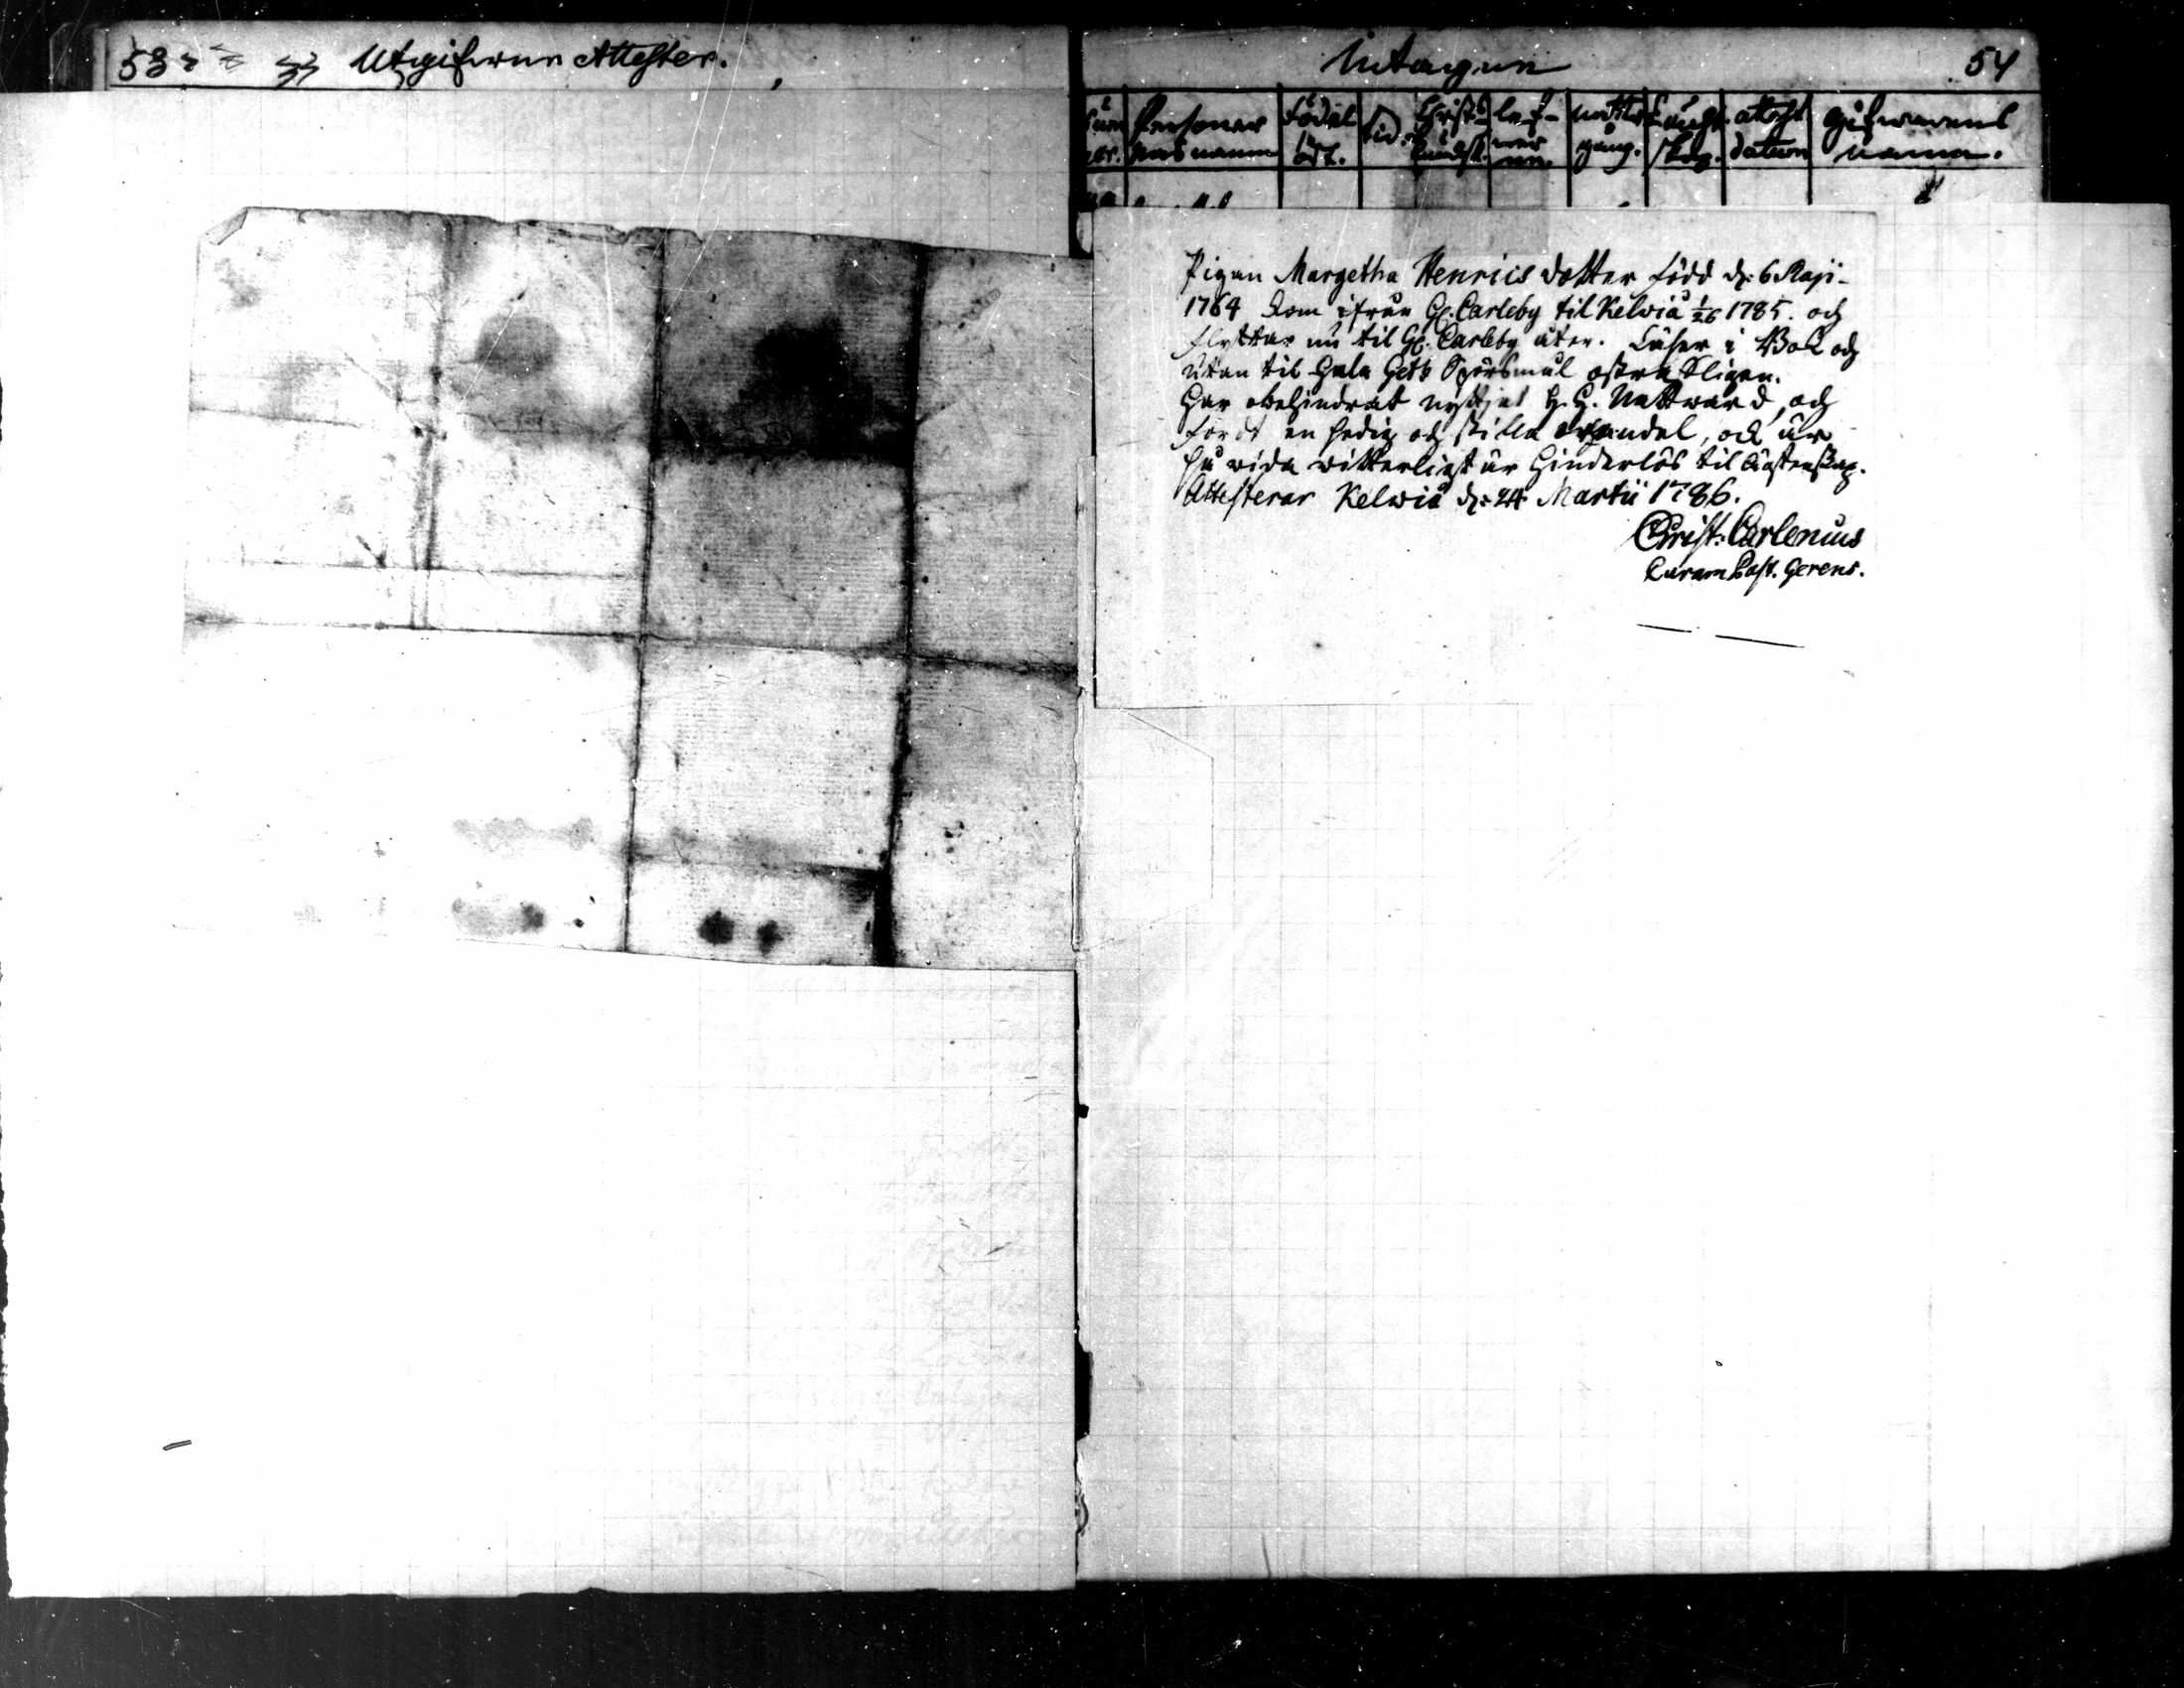 53 Utgifwna Attester.
Intagne 54
Personer nas namn
födelse ort.
tid.
Christ. kundsk.
lef- wer ne.
nattv. gång.
datum
gifwarens namn.
Pigan Margetha Henrics dotter född d: 6 Maji
1764 kom ifrån Gl. Carleby til Kelwiå 1/26 1785. och
flyttar nu til Gl. Carleby åter. Läser i Bok och
utan til hela Spörsmål
har obehindrat nyttjat H. H. Nattward, och
fördt en hedig och stilla wandel, och är
så wida witterligt är hinderlös til Äcktenskap.
Attesterar Kelwiå d: 24 Martii 1786.
Christ. Carlenius
Curam Past. Gerens.